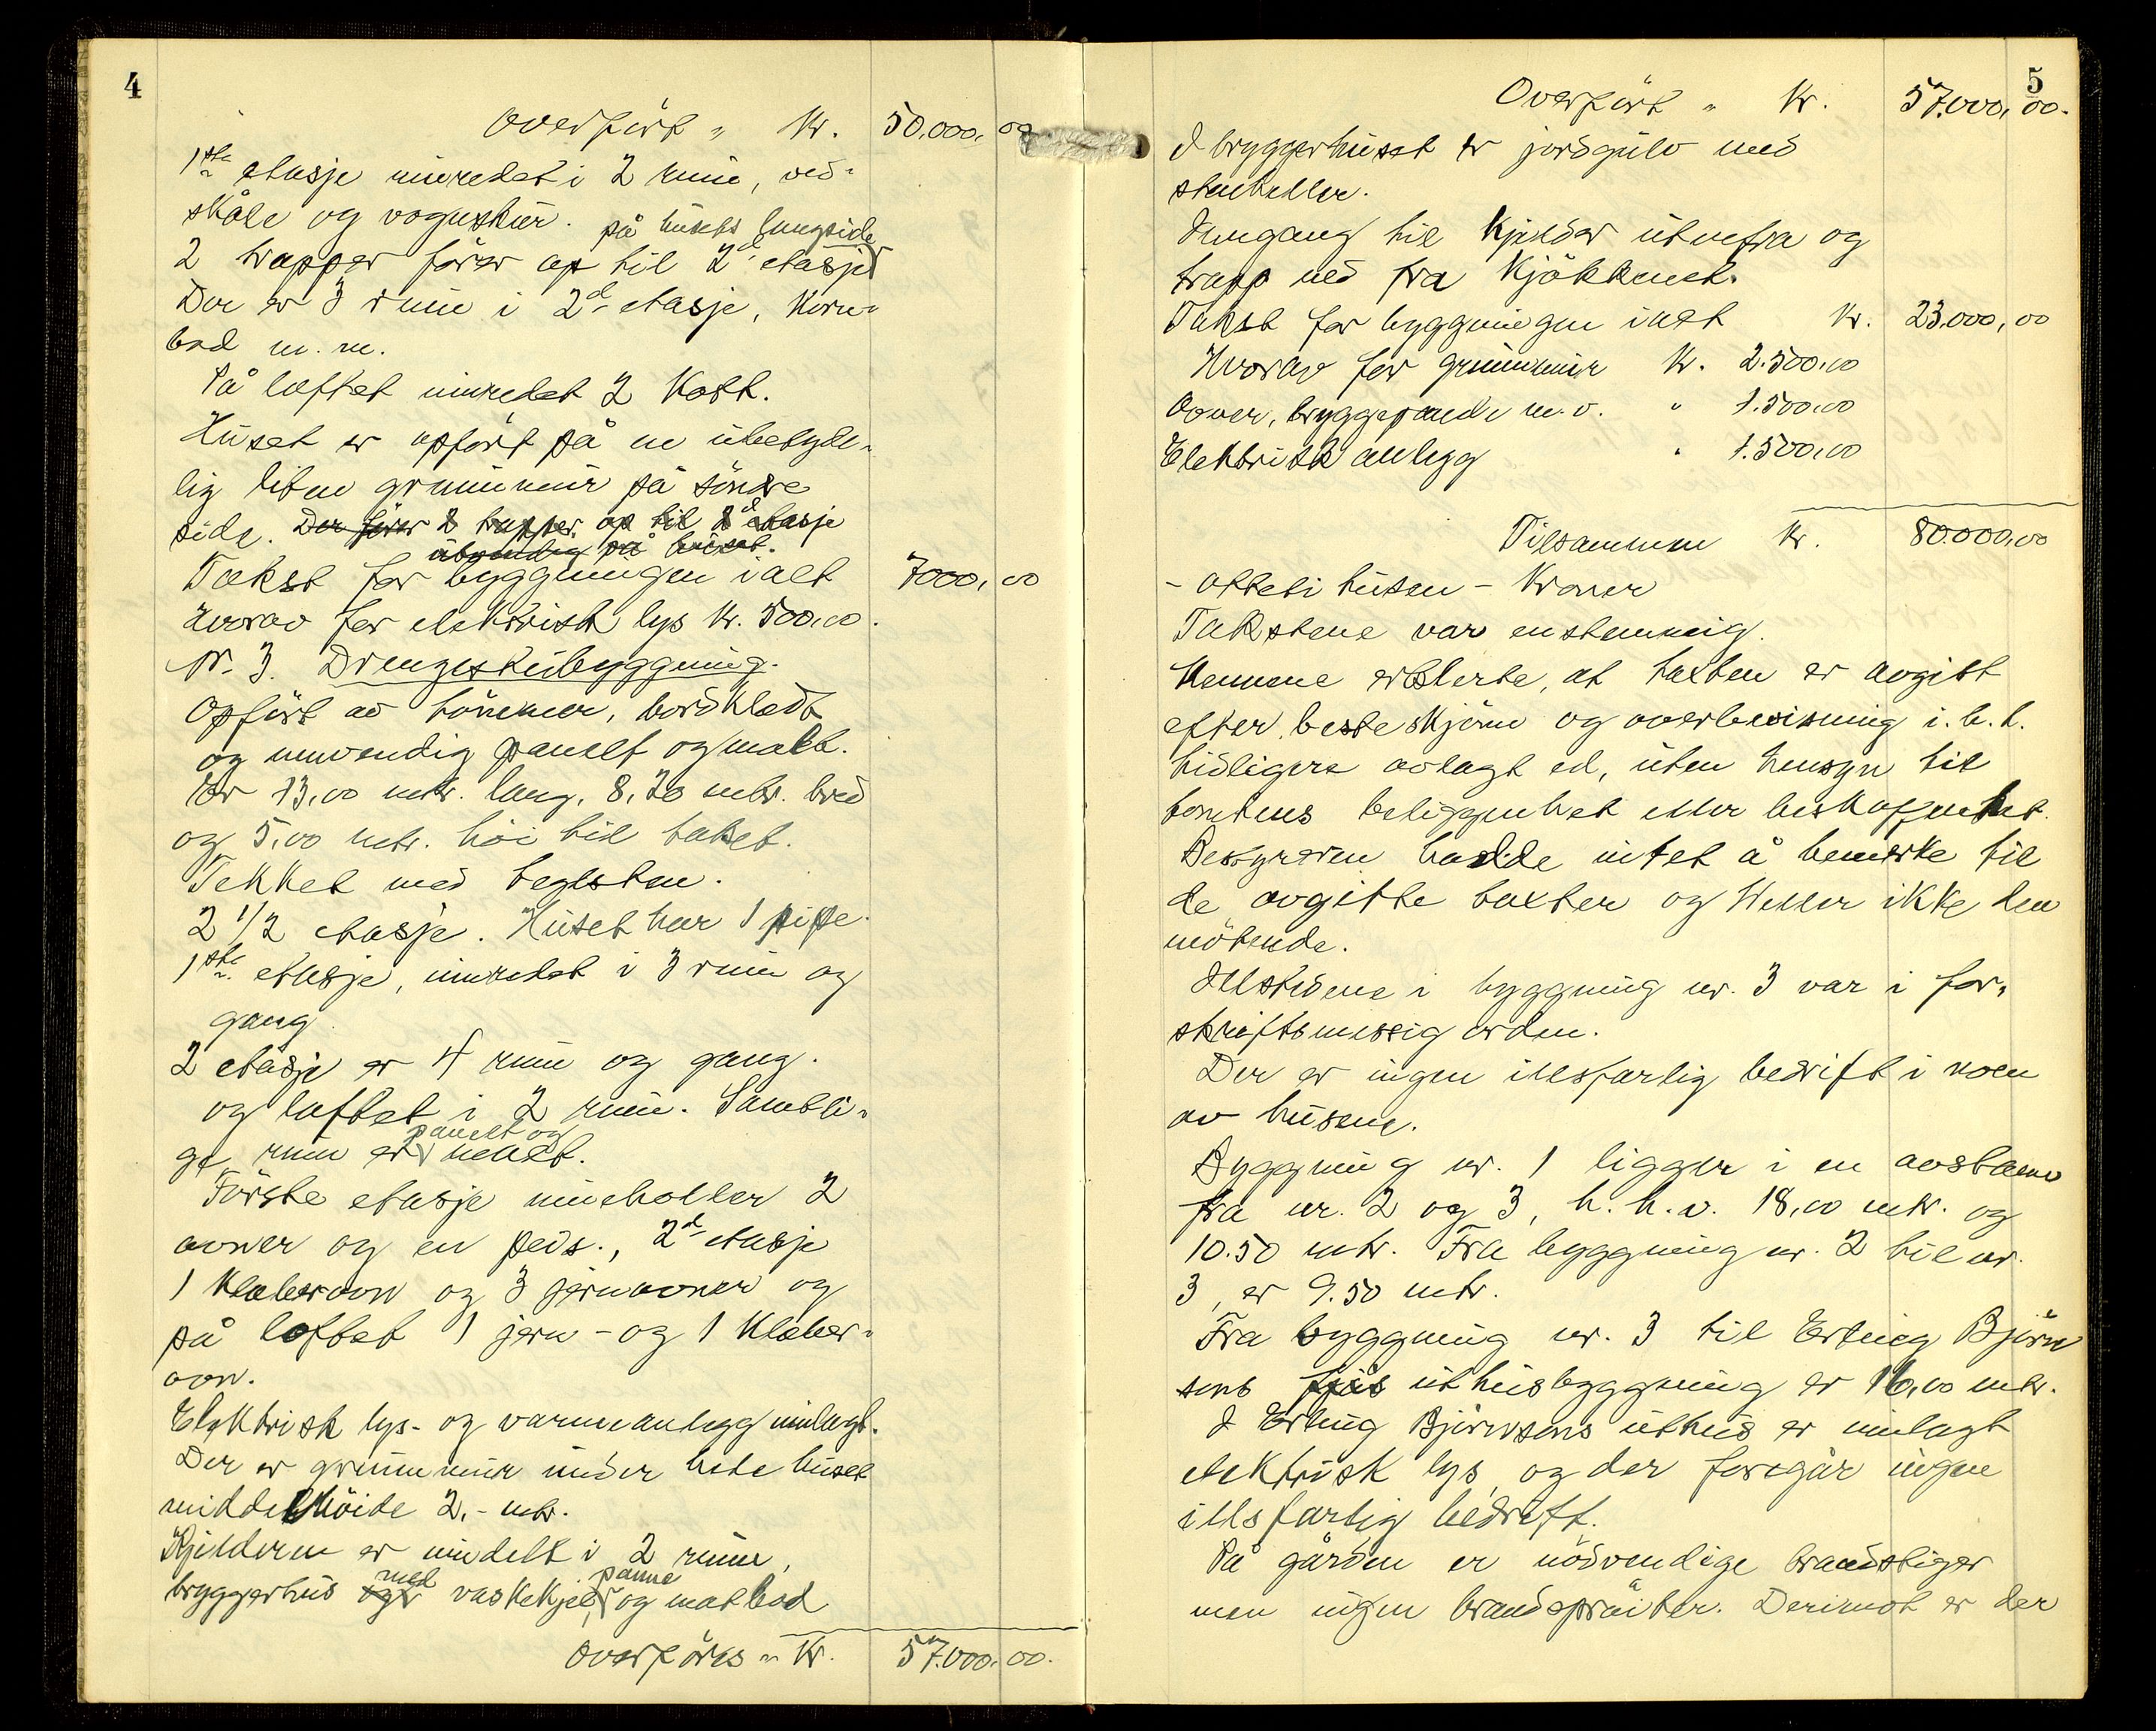 4
Overført " Kr. 50.000,00
1ste etasje innredet i 2 rum, ved-
skåle og vognskur. på husets langside
2 trapper fører op til 2d etasje
Der er 3 rum i 2d etasje, korn-
bod m.m.
På loftet innredet 2 kott.
Huset er opført på en ubetyde-
lig liten grunnmur på søndre
side. Der fører 2 trapper op til 2d etasje
utvendig på huset.
Takst for byggningen ialt 7000,00
Hvorav for elektrisk lys Kr. 500,00.
Nr. 3. Drengestubyggning.
Opført av tømmer, bordklædt
og innvendig panelt og malt.
Er 13,00 mtr. lang, 8,20 mtr. bred
og 5,00 mtr. høi til taket.
Tekket med teglsten.
2 1/2 etasje. Huset har 1 pipe.
1ste etasje, innredet i 3 rum og
gang.
2 etasje er 4 rum og gang.
og loftet i 2 rum. Samtli-
ge rum er panelt og malt.
Første etasje inneholder 2
ovner og en peis., 2d etasje
1 kleberovn og 3 jernovner og
på loftet 1 jern- og 1 kleber-
ovn.
Elektrisk lys- og varmeanlegg innlagt.
Der er grunnmur under hele huset
middelhøide 2,- mtr.
Kjelderen er inndelt i 2 rum,
bryggerhus med vaskekjel, panne og matbod
Overføres " Kr. 57.000,00.
5
Overført " Kr. 57.000,00.
I bryggerhuset er jordgulv med
stenheller.
Inngang til kjelder utenfra og
trapp ned fra kjøkkenet.
Takst for byggningen ialt Kr. 23.000,00
Hvorav for grunnmur Kr. 2.500,00
Ovner, bryggepande m.v. " 1.500,00
Elektrisk anlegg " 1.500,00
Tilsammen Kr. 80.000,00
- otteti tusen - Kroner
Takstene var enstemmig.
Mennene erklerte, at taxten er avgitt
efter beste skjønn og overbevisning i.h.t.
tidligere avlagt ed, uten hensyn til
tomtens beliggenhet eller beskaffenhet.
Bestyreren hadde intet å bemerke til
de avgitte taxter og heller ikke den
møtende.
Illstedene i byggning nr. 3 var i for-
skriftsmessig orden.
Der er ingen illsfarlig bedrift i noen
av husene.
Byggning nr. 1 ligger i en avstann
fra nr. 2 og 3, h.h.v. 18,00 mtr. og
10.50 mtr. Fra byggning nr. 2 til nr.
3, er 9.50 mtr.
Fra byggning nr. 3 til Erling Bjørn
sens fjøs uthusbyggning er 16,00 mtr.
I Erling Bjørnsens uthus er innlagt
elektrisk lys, og der foregår ingen
illsfarlig bedrift.
På gården er nødvendige brandstiger
men ingen brandsprøiter. Derimot er der